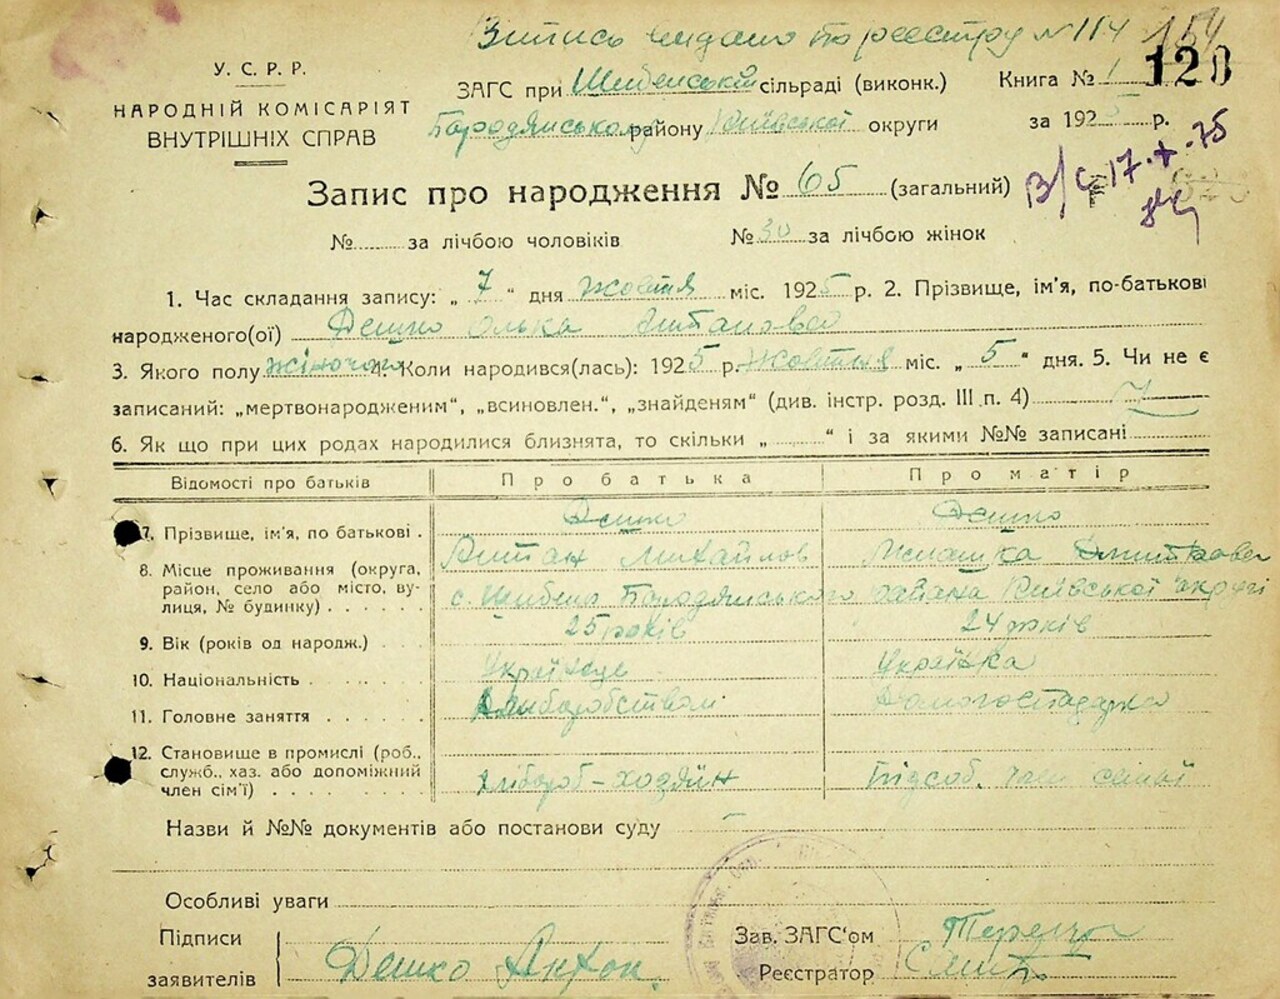 Запись видано по реєстру № 114 154
У. С. Р. Р.
НАРОДНІЙ КОМІСАРІЯТ
ВНУТРІШНІХ СПРАВ
ЗАГС при Шибенській сільраді (виконк.) Книга № 1 128
Бородянського району Київської округи за 1925 р.
В/С 17-X-75
Запис про народження № 65 (загальний)
№ за лічбою чоловіків № 30 за лічбою жінок
1. Час складання запису: „ 7 “ дня жовтня міс. 1925 р. 2. Прізвище, ім'я, по-батькові
народженого(ої) Дешко Олька Антонова
3. Якого полу жіночого 4. Коли народився(лась): 1925 р. Жовтня міс. „ 5 “ дня. 5. Чи не є
записаний: „мертвонародженим“, „всиновлен.“, „знайденям“ (див. інстр. розд. III п. 4)
6. Як що при цих родах народилися близнята, то скільки „ “ і за якими №№ записані
Відомості про батьків Про батька Про матір
7. Прізвище, ім'я, по батькові . Дешко Дешко
Антан Михайлов
8. Місце проживання (округа, район, село або місто, вулиця, № будинку) . . . . . с. Шибене Бородянського района Київської округі
9. Вік (років од народж.) . . 25 років 24 років
10. Національність . . . . . Українець Українка
11. Головне заняття . . . . . Хліборобством Домогосподарка
12. Становище в промислі (роб., служб., хаз. або допоміжний член сім'ї) . . . . . . . Хлібороб-хозяїн Підсоб. член семьї
Назви й №№ документів або постанови суду –
Особливі уваги
Підписи
заявителів Дешко Антон.
Зав. ЗАГС'ом
Реєстратор